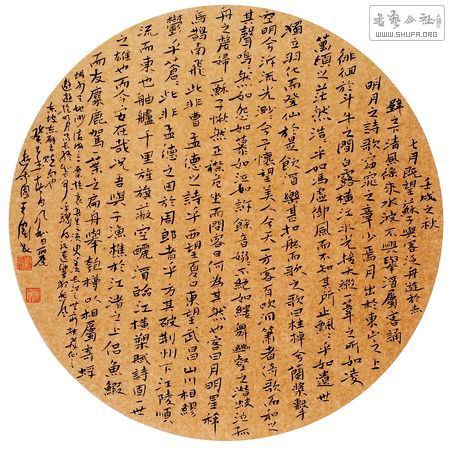 书艺公社
WWW.SHUFA.ORG
壬戌之秋
七月既望蘇子與客泛舟遊於赤
壁之下清風徐來水波不興舉酒屬客誦
明月之詩歌窈窕之章少焉月出於東山之上
徘徊於斗牛之間白露橫江水光接天縱一葦之所如凌
萬頃之茫然浩乎如馮虛御風而不知其所止飄飄乎如遺世
獨立羽化而登仙於是飲酒樂甚扣舷而歌之歌曰桂棹兮蘭槳擊
空明兮泝流光渺渺兮予懷望美人兮天一方客有吹洞簫者倚歌而和之
其聲嗚嗚然如怨如慕如泣如訴餘音嫋嫋不絕如縷舞幽壑之潛蛟泣孤
舟之嫠婦蘇子愀然正襟危坐而問客曰何為其然也客曰月明星稀
烏鵲南飛此非曹孟德之詩乎西望夏口東望武昌山川相繆
鬱乎蒼蒼此非孟德之困於周郎者乎方其破荊州下江陵順
流而東也舳艫千里旌旗蔽空釃酒臨江橫槊賦詩固一世
之雄也而今安在哉況吾與子漁樵於江渚之上侶魚蝦
而友麋鹿駕一葉之扁舟舉匏樽以相屬寄蜉